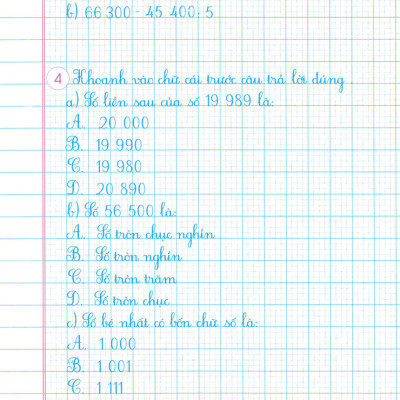 b) 66 300 - 45 400 : 5
4 Khoanh vào chữ cái trước câu trả lời đúng.
a) Số liền sau của số 19 989 là:
A. 20 000
B. 19 990
C. 19 980
D. 20 890
b) Số 56 500 là:
A. Số tròn chục nghìn
B. Số tròn nghìn
C. Số tròn trăm
D. Số tròn chục
c) Số bé nhất có bốn chữ số là:
A. 1 000
B. 1 001
C. 1 111